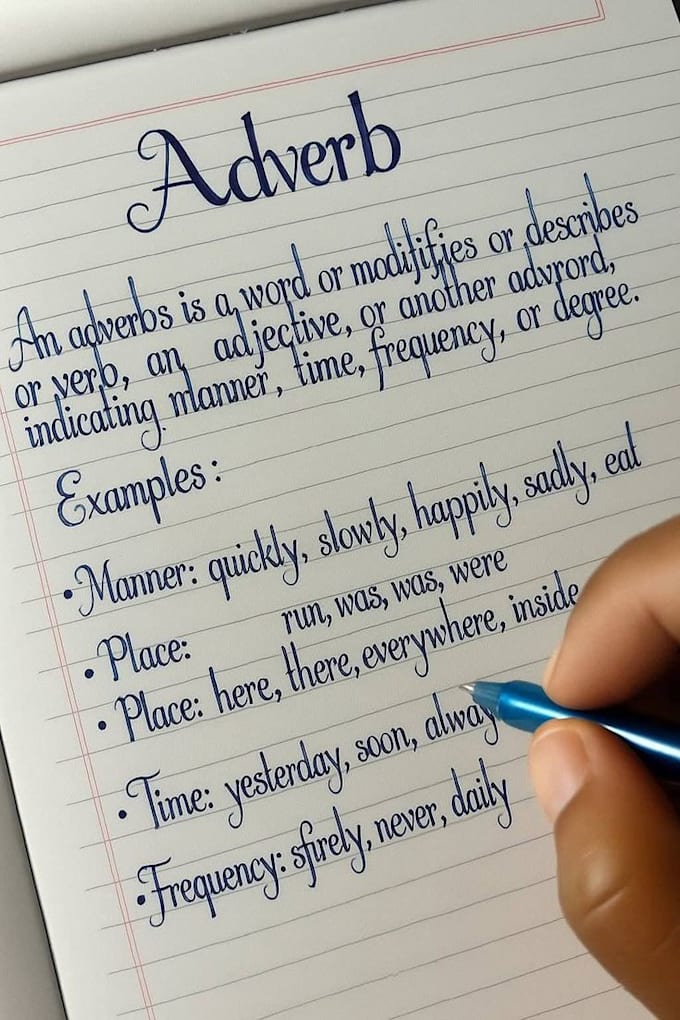 Adverb
An adverbs is a word or modififies or describes
or verb, an adjective, or another advrord,
indicating manner, time, frequency, or degree.
Examples:
• Manner: quickly, slowly, happily, sadly, eat
run, was, was, were
• Place:
• Place: here, there, everywhere, inside
• Time: yesterday, soon, alway
• Frequency: never, daily